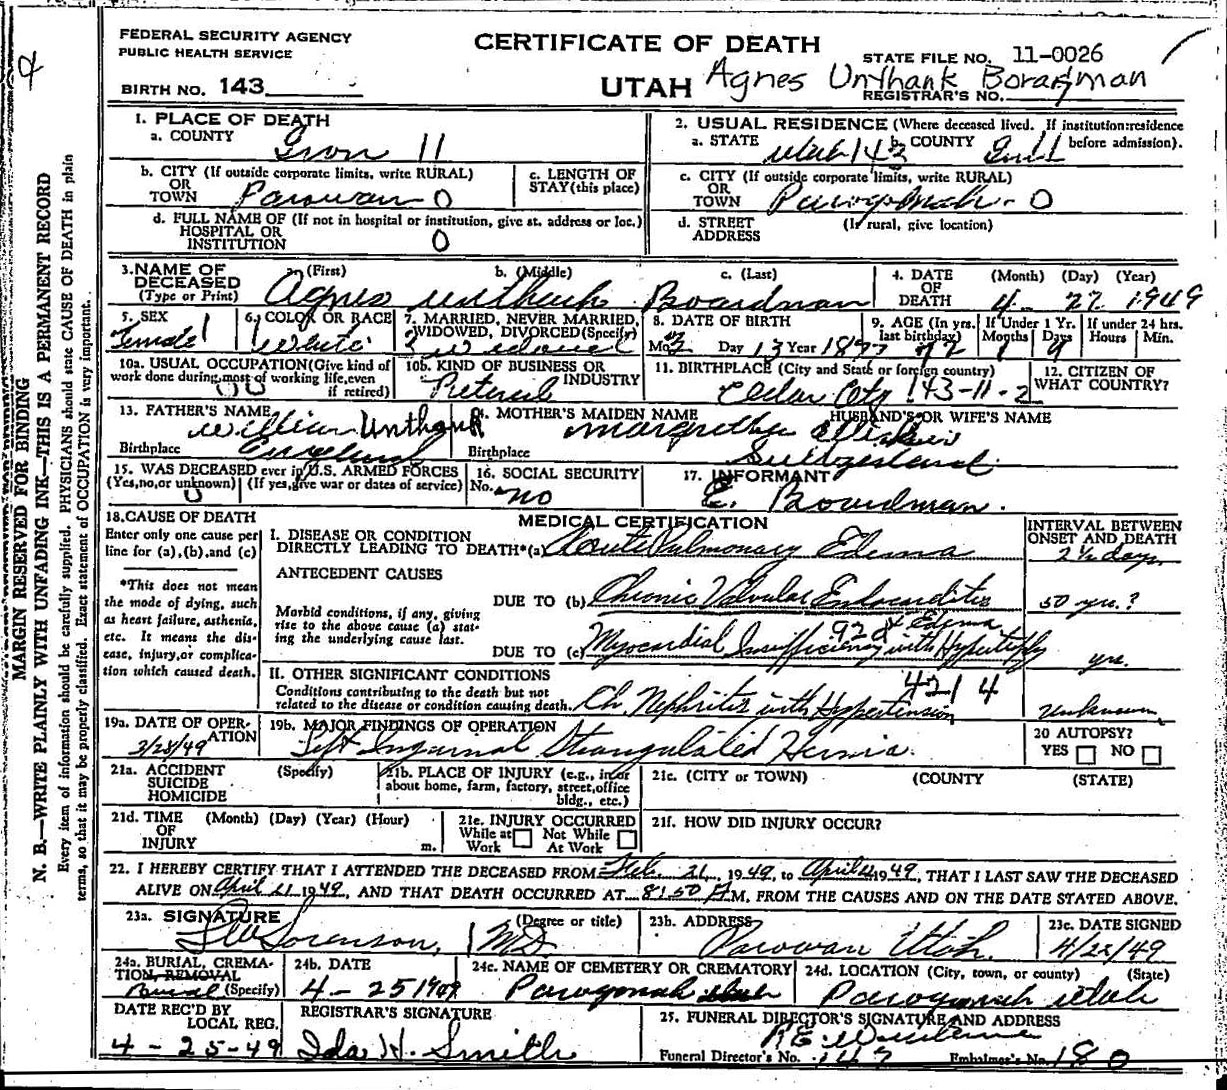 FEDERAL SECURITY AGENCY
PUBLIC HEALTH SERVICE
CERTIFICATE OF DEATH
STATE FILE NO. 11-0026
BIRTH NO. 143
UTAH Agnes Unthank Boardman
REGISTRAR'S NO.
1. PLACE OF DEATH
a. COUNTY Iron 11
2. USUAL RESIDENCE (Where deceased lived. If institution:residence
a. STATE Utah 143 b. COUNTY before admission).
b. CITY (If outside corporate limits, write RURAL)
OR
TOWN Parowan 0
c. LENGTH OF
STAY(this place)
c. CITY (If outside corporate limits, write RURAL)
OR
TOWN Paragonah - 0
d. FULL NAME OF (If not in hospital or institution, give st. address or loc.)
HOSPITAL OR
INSTITUTION 0
d. STREET (If rural, give location)
ADDRESS
3.NAME OF
DECEASED
(Type or Print)
a. (First) b. (Middle) c. (Last)
Agnes Unthank Boardman
4. DATE (Month) (Day) (Year)
OF
DEATH 4 1949
5. SEX
Female 1
6. COLOR OR RACE
White
7. MARRIED, NEVER MARRIED,
WIDOWED, DIVORCED(Specify)
3 Widowed
8. DATE OF BIRTH
Mo. 3 Day 13 Year
9. AGE (In yrs.
last birthday)
72
If Under 1 Yr.
Months Days
1 9
If under 24 hrs.
Hours Min.
10a. USUAL OCCUPATION(Give kind of
work done during most of working life, even
if retired)
10b. KIND OF BUSINESS OR
INDUSTRY
Retired
11. BIRTHPLACE (City and State or foreign country)
Cedar City 143-11-2
12. CITIZEN OF
WHAT COUNTRY?
13. FATHER'S NAME
William Unthank
Birthplace England
14. MOTHER'S MAIDEN NAME
Margrethe
Birthplace Switzerland
HUSBAND'S OR WIFE'S NAME
15. WAS DECEASED ever in U.S. ARMED FORCES
(Yes,no,or unknown) (If yes,give war or dates of service)
0
16. SOCIAL SECURITY
No. no
17. INFORMANT
E. Boardman.
18.CAUSE OF DEATH
Enter only one cause per
line for (a),(b),and (c)
*This does not mean
the mode of dying, such
as heart failure, asthenia,
etc. It means the dis-
ease, injury,or complica-
tion which caused death.
MEDICAL CERTIFICATION
I. DISEASE OR CONDITION
DIRECTLY LEADING TO DEATH*(a) Acute Pulmonary Edema
INTERVAL BETWEEN
ONSET AND DEATH
2½ days
ANTECEDENT CAUSES
DUE TO (b) Chronic Valvular Endocarditis
50 yrs.?
Morbid conditions, if any, giving
rise to the above cause (a) stat-
ing the underlying cause last.
92d & Edema
DUE TO (c) Myocardial Insufficiency with Hypertrophy
yrs.
II. OTHER SIGNIFICANT CONDITIONS
Conditions contributing to the death but not
related to the disease or condition causing death.
4214
Ch. Nephritis with Hypertension
Unknown
19a. DATE OF OPER-
ATION
3/28/49
19b. MAJOR FINDINGS OF OPERATION
Left Inguinal Strangulated Hernia.
20 AUTOPSY?
YES NO
21a. ACCIDENT (Specify)
SUICIDE
HOMICIDE
21b. PLACE OF INJURY (e.g., in or
about home, farm, factory, street,office
bldg., etc.)
21c. (CITY or TOWN) (COUNTY) (STATE)
21d. TIME (Month) (Day) (Year) (Hour)
OF
INJURY m.
21e. INJURY OCCURRED
While at Not While
Work At Work
21f. HOW DID INJURY OCCUR?
22. I HEREBY CERTIFY THAT I ATTENDED THE DECEASED FROM Feb. 21, 1949, to April 1949, THAT I LAST SAW THE DECEASED
ALIVE ON April 21 1949, AND THAT DEATH OCCURRED AT 8:50 M, FROM THE CAUSES AND ON THE DATE STATED ABOVE.
23a. SIGNATURE (Degree or title)
Sorenson, M.D.
23b. ADDRESS
Parowan Utah.
23c. DATE SIGNED
4/22/49
24a. BURIAL, CREMA-
TION, REMOVAL
Burial (Specify)
24b. DATE
4-25 1949
24c. NAME OF CEMETERY OR CREMATORY
Paragonah
24d. LOCATION (City, town, or county) (State)
Paragonah Utah
DATE REC'D BY
LOCAL REG.
4-25-49
REGISTRAR'S SIGNATURE
Ida H. Smith
25. FUNERAL DIRECTOR'S SIGNATURE AND ADDRESS
Funeral Director's No. 147 Embalmer's No. 180
MARGIN RESERVED FOR BINDING
N. B.—WRITE PLAINLY WITH UNFADING INK—THIS IS A PERMANENT RECORD
Every item of information should be carefully supplied. PHYSICIANS should state CAUSE OF DEATH in plain
terms, so that it may be properly classified. Exact statement of OCCUPATION is very important.